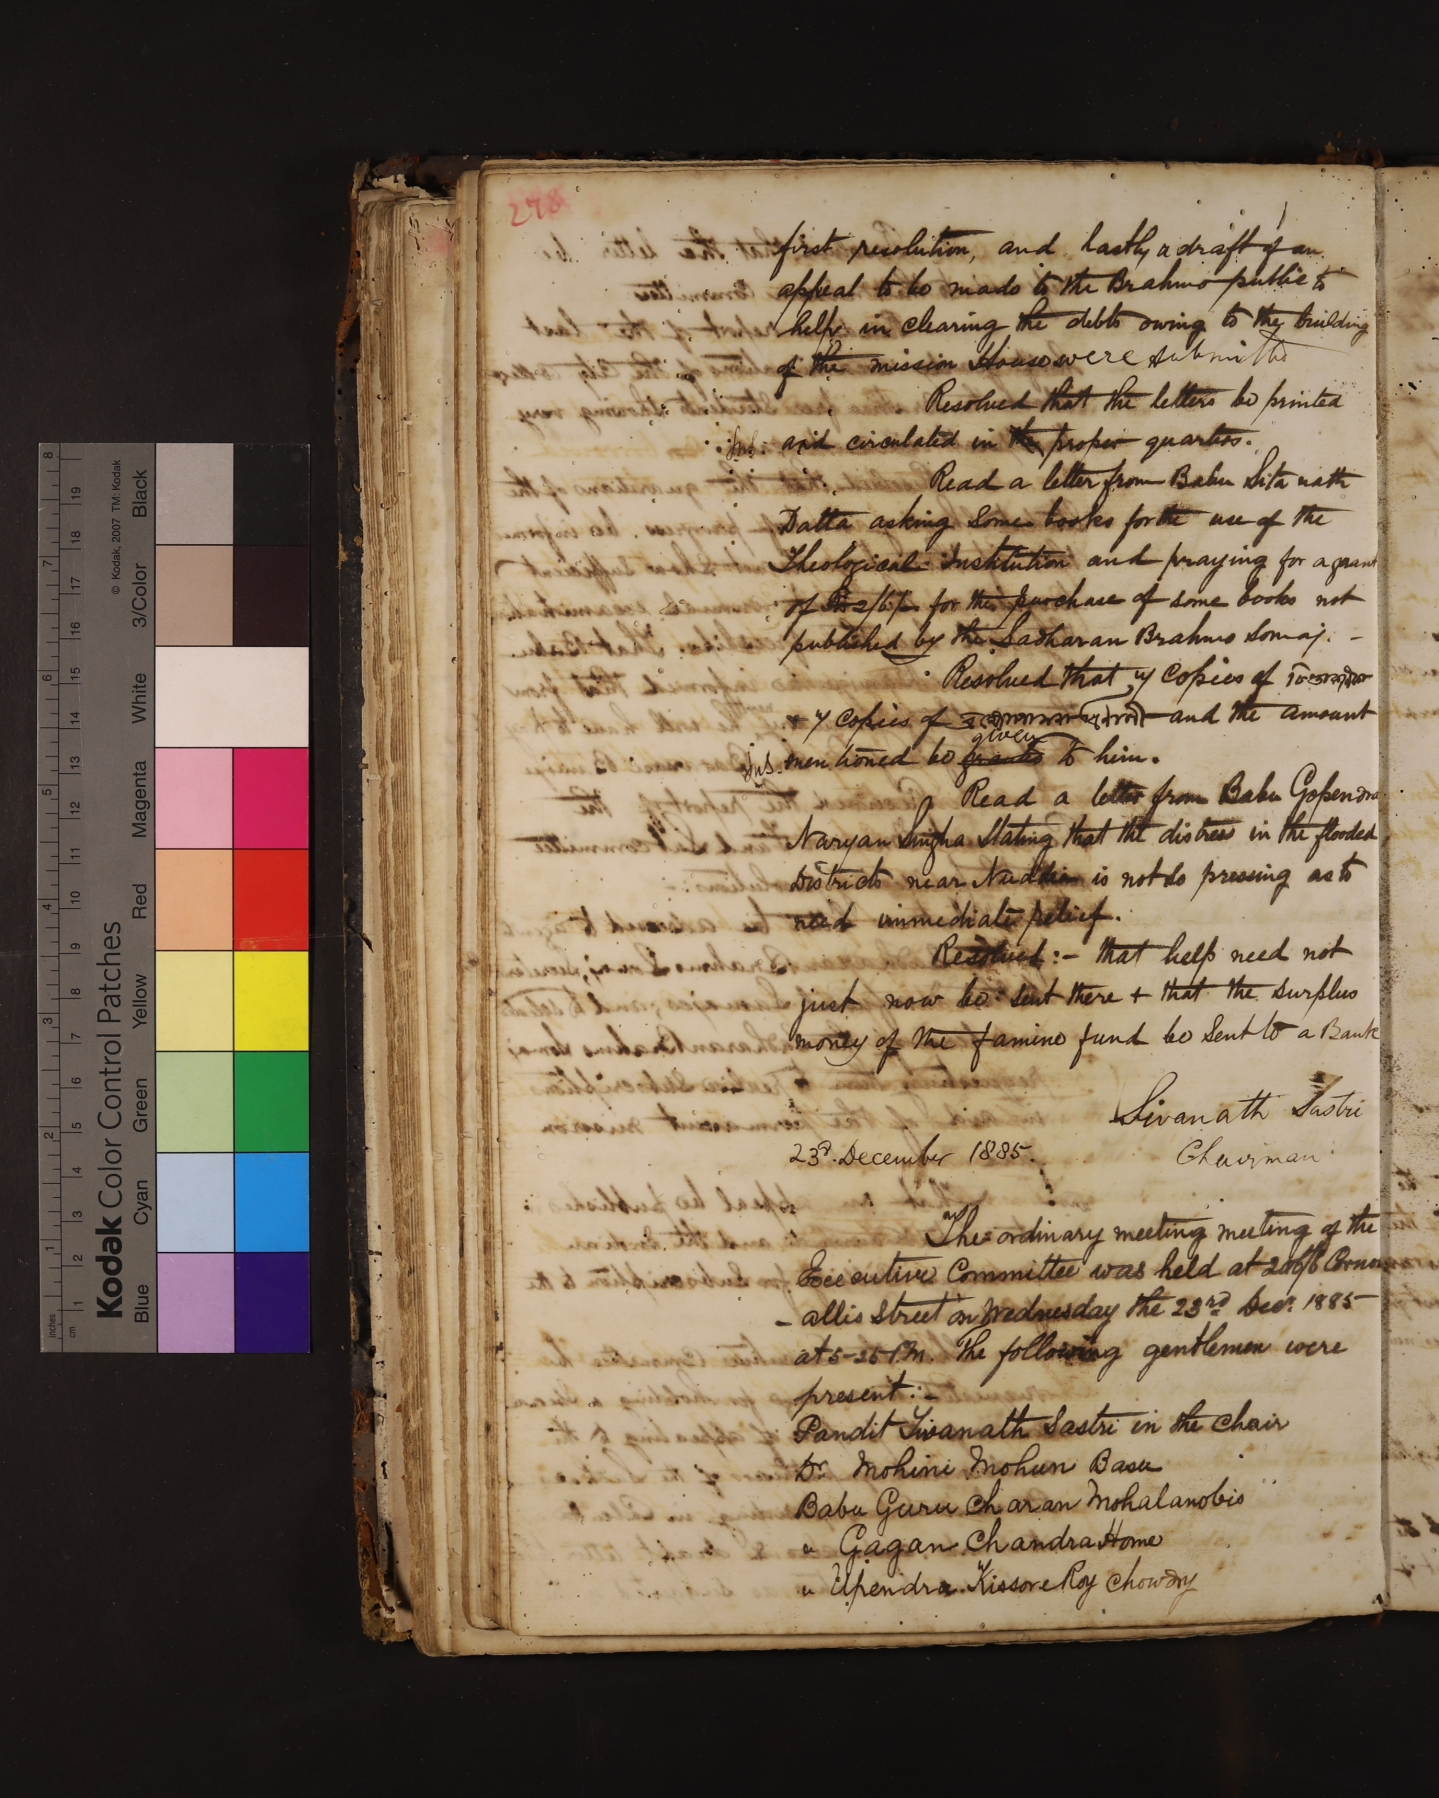 278
first resolution, and lastly a draft of an
appeal to be made to the Brahmo public to
help in clearing the debts owing to the building
of the mission House were submitted
Resolved that the letters be printed
and circulated in the proper quarters.
Read a letter from Babu Sita nath
Datta asking Some books for the use of the
Theological Institution and praying for a grant
of for the purchase of some books not
published by the Sadharan Brahmo Somaj. -
Resolved that 4 copies of
+ 4 copies of and the amount
given
mentioned be to him.
Read a letter from Babu Gopendra
Naryan Singha Stating that the distress in the flooded
Districts near Nuddia is not so pressing as to
need immediate relief.
Resolved :- that help need not
just now be sent there + that the surplus
money of the famine fund be Sent to a Bank
Sivanath Sastri
23rd. December 1885.
Chairman
The ordinary meeting meeting of the
Executive Committee was held at
- allis Street on Wednesday the 23rd Decr. 1885
at 5-25 P.M. The following gentlemen were
present :-
Pandit Sivanath Sastri in the Chair
Dr. Mohini Mohun Basu
Babu Guru Charan Mohalanobis
" Gagan Chandra Home
" Upendra Kissore Roy Chowdry
Kodak Color Control Patches
© Kodak, 2007 TM: Kodak
Blue Cyan Green Yellow Red Magenta White 3/Color Black
inches 1 2 3 4 5 6 7 8
cm 1 2 3 4 5 6 7 8 9 10 11 12 13 14 15 16 17 18 19